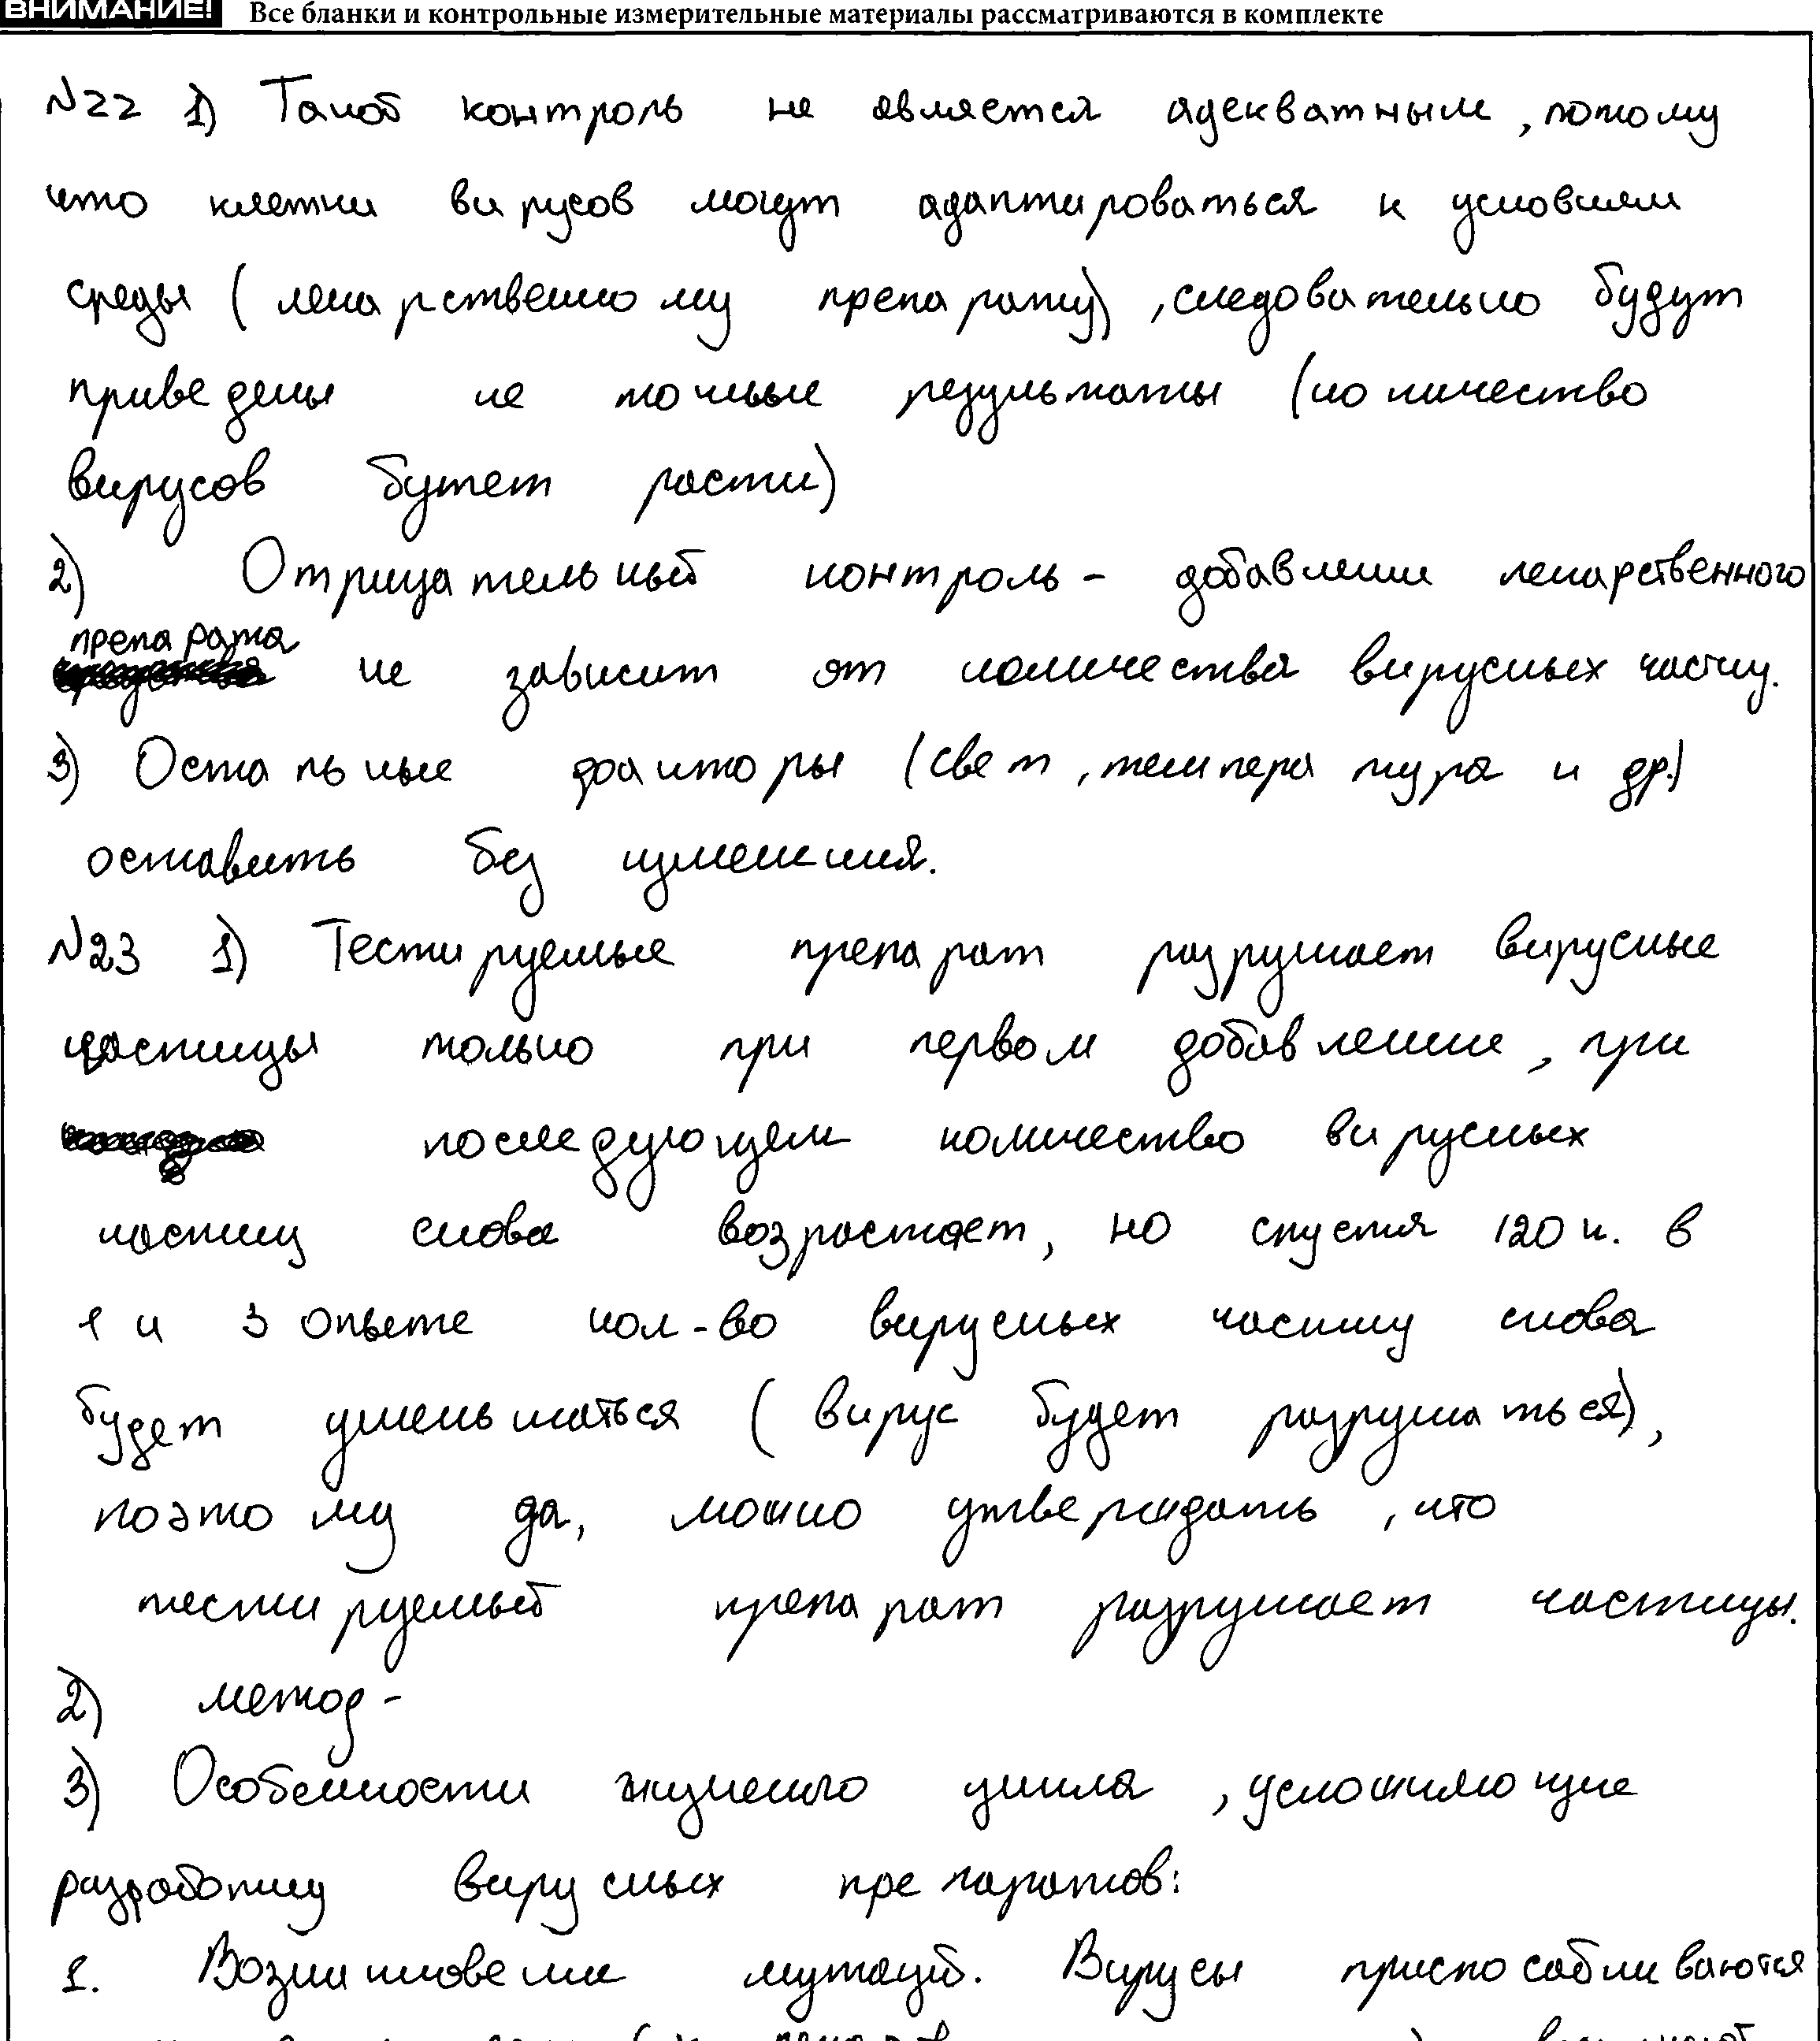 ВНИМАНИЕ! Все бланки и контрольные измерительные материалы рассматриваются в комплекте
N22 1) Такой контроль не является адекватным, потому
что клетки вирусов могут адаптироваться к условиям
среды (лекарственному препарату), следовательно будут
приведены не точные результаты (количество
вирусов бутет расти)
2) Отрицательный контроль - добавлении лекарственного
препарата не зависит от количества вирусных частиц.
3) Остальные факторы (свет, температура и др.)
оставить без изменения.
N23 1) Тестируемые препарат разрушает вирусные
частицы только при первом добавление, при
последующем количество вирусных
частиц снова возрастает, но спустя 120 ч. в
1 и 3 опыте кол-во вирусных частиц снова
будет уменьшаться (вирус будет разрушаться),
поэтому да, можно утверждать, что
тестируемый препарат разрушает частицы.
2) метод -
3) Особенности жизненого цикла, усложняющие
разработку вирусных препаратов:
1. Возникновение мутаций. Вирусы приспосабливаются